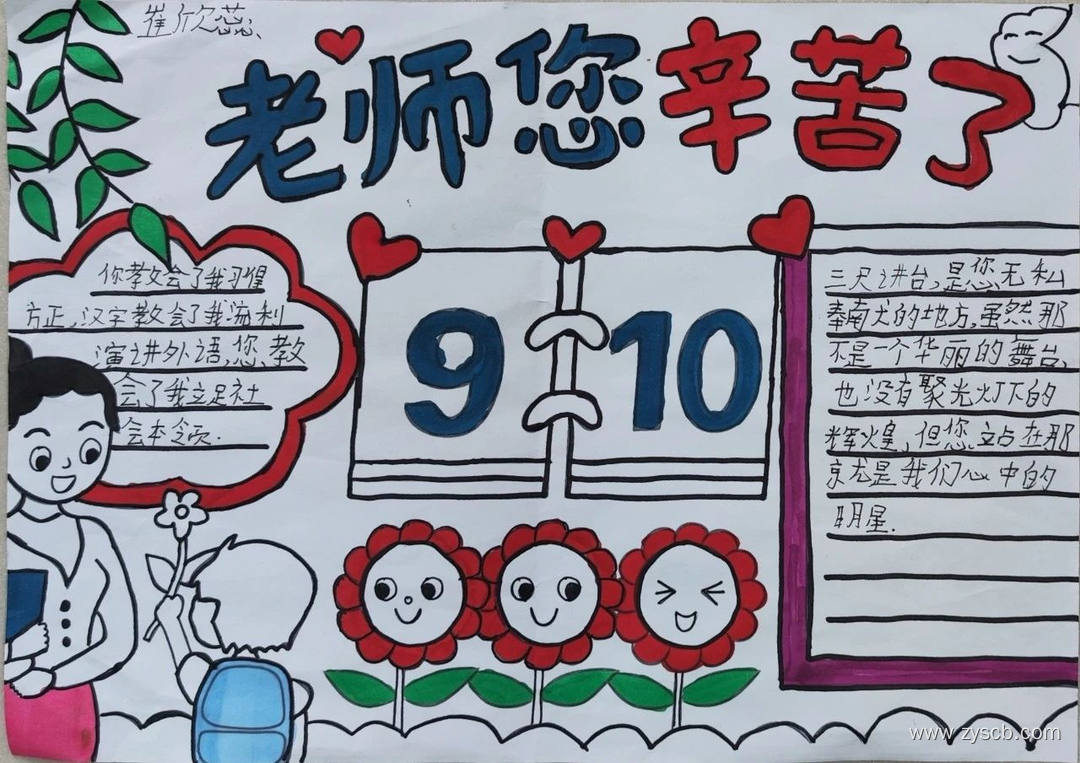 崔欣蕊
老师您辛苦了
你教会了我习惺
方正,汉字教会了我流利
演讲外语,您教
会了我立足社
会本领.
9 10
三尺讲台,是您无私
奉南犬的地方,虽然那
不是一个华丽的舞台,
也没有聚光灯下的
辉煌,但您站在那
京尤是我们心中的
明星.
www.zyscb.com